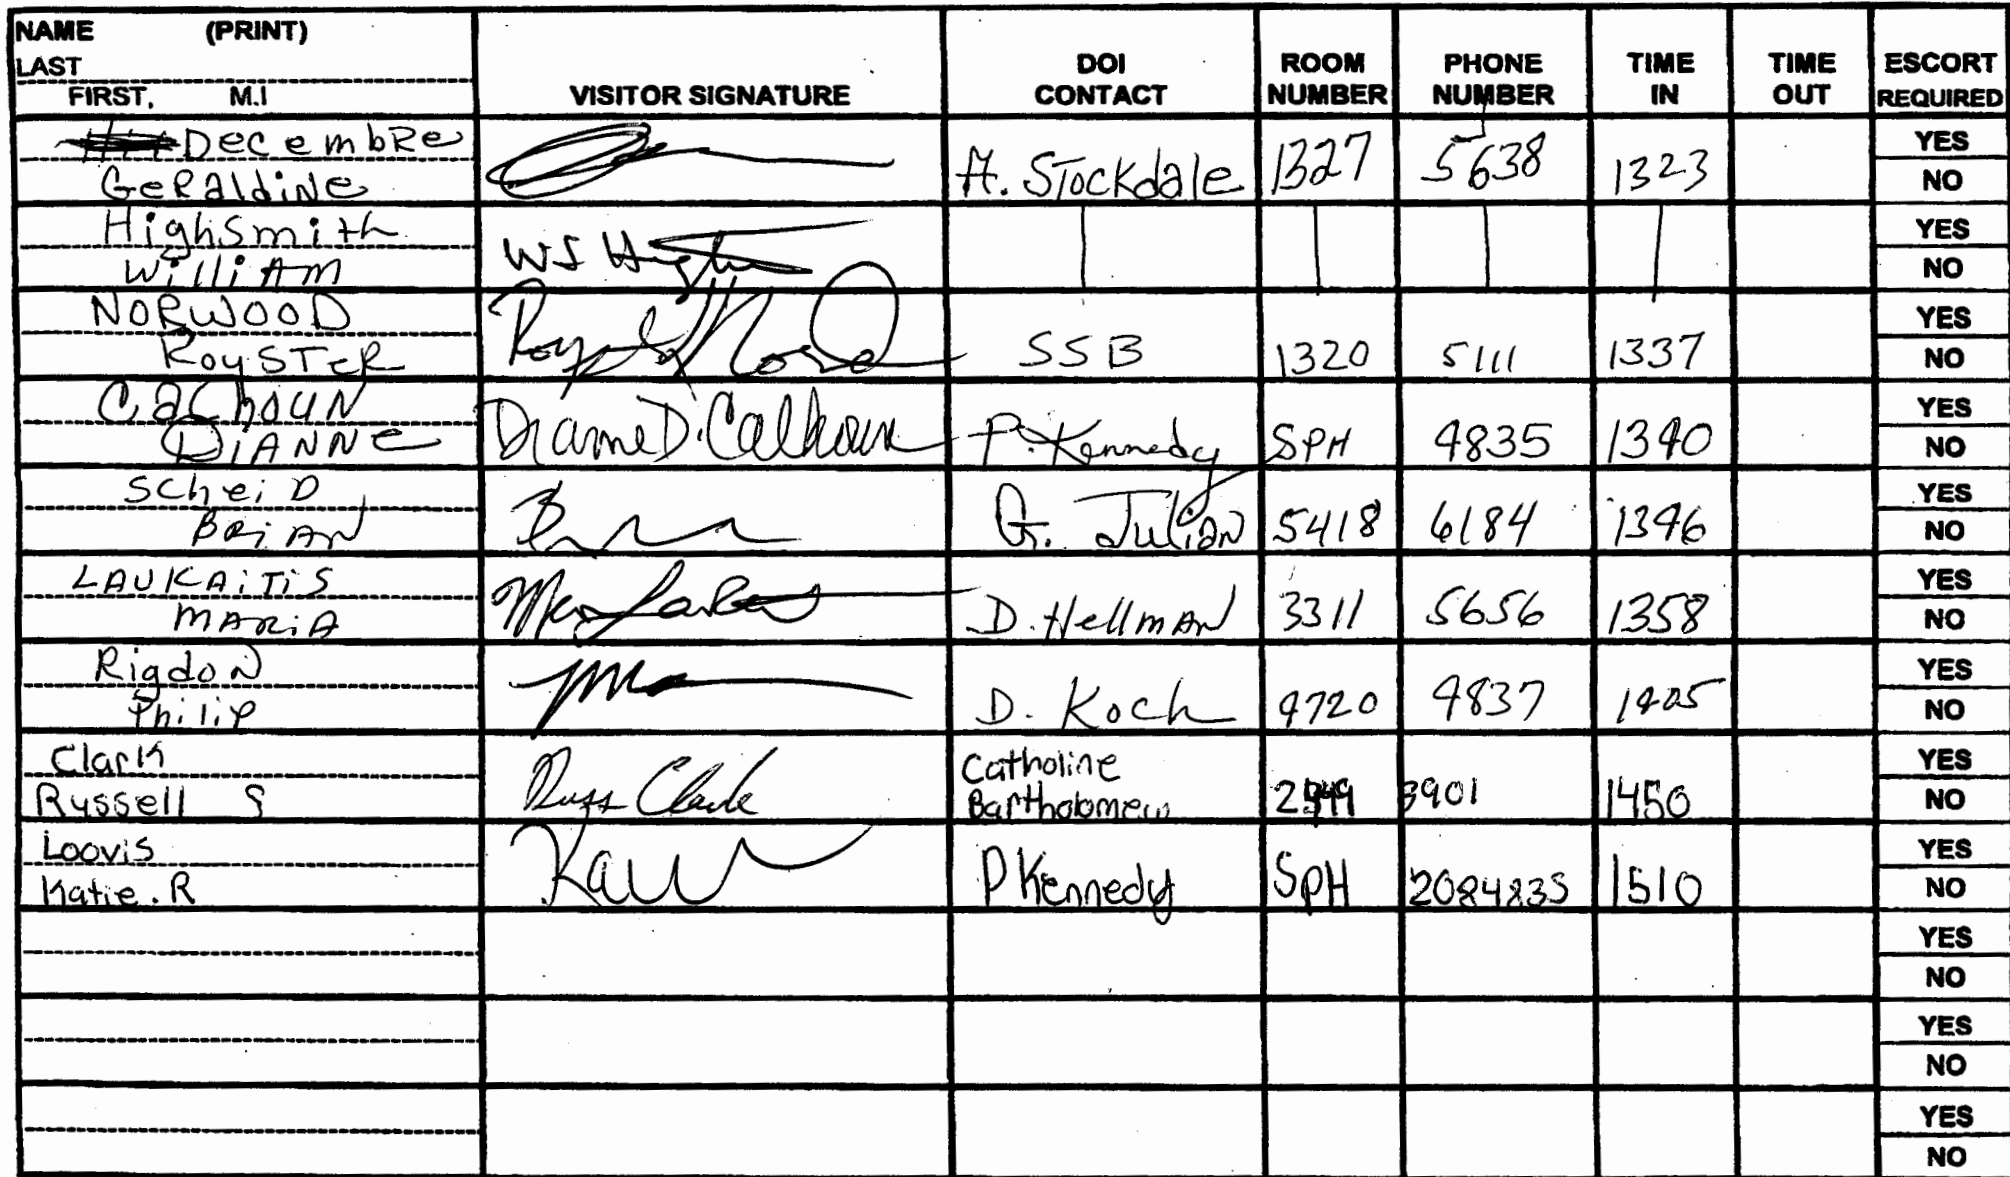 NAME (PRINT)
LAST
FIRST, M.I
VISITOR SIGNATURE
DOI CONTACT
ROOM NUMBER
PHONE NUMBER
TIME IN
TIME OUT
ESCORT REQUIRED
Decembre
Geraldine
A. Stockdale 1327 5638 1323
YES
NO
Highsmith
William
YES
NO
NORWOOD
RoySTeR
SSB 1320 5111 1337
YES
NO
Calhoun
DiANNe
Dianne D. Calhoun
P. Kennedy SPH 4835 1340
YES
NO
ScheiD
BRiAN
G. Julian 5418 6184 1346
YES
NO
LAUKAiTiS
MARiA
D. Hellman 3311 5656 1358
YES
NO
Rigdon
Philip
D. Koch 4720 4837 1405
YES
NO
Clark
Russell S
Russ Clark
Catholine
Bartholomew 3901 1450
YES
NO
Loovis
Katie. R
P Kennedy SPH 2084835 1510
YES
NO
YES
NO
YES
NO
YES
NO